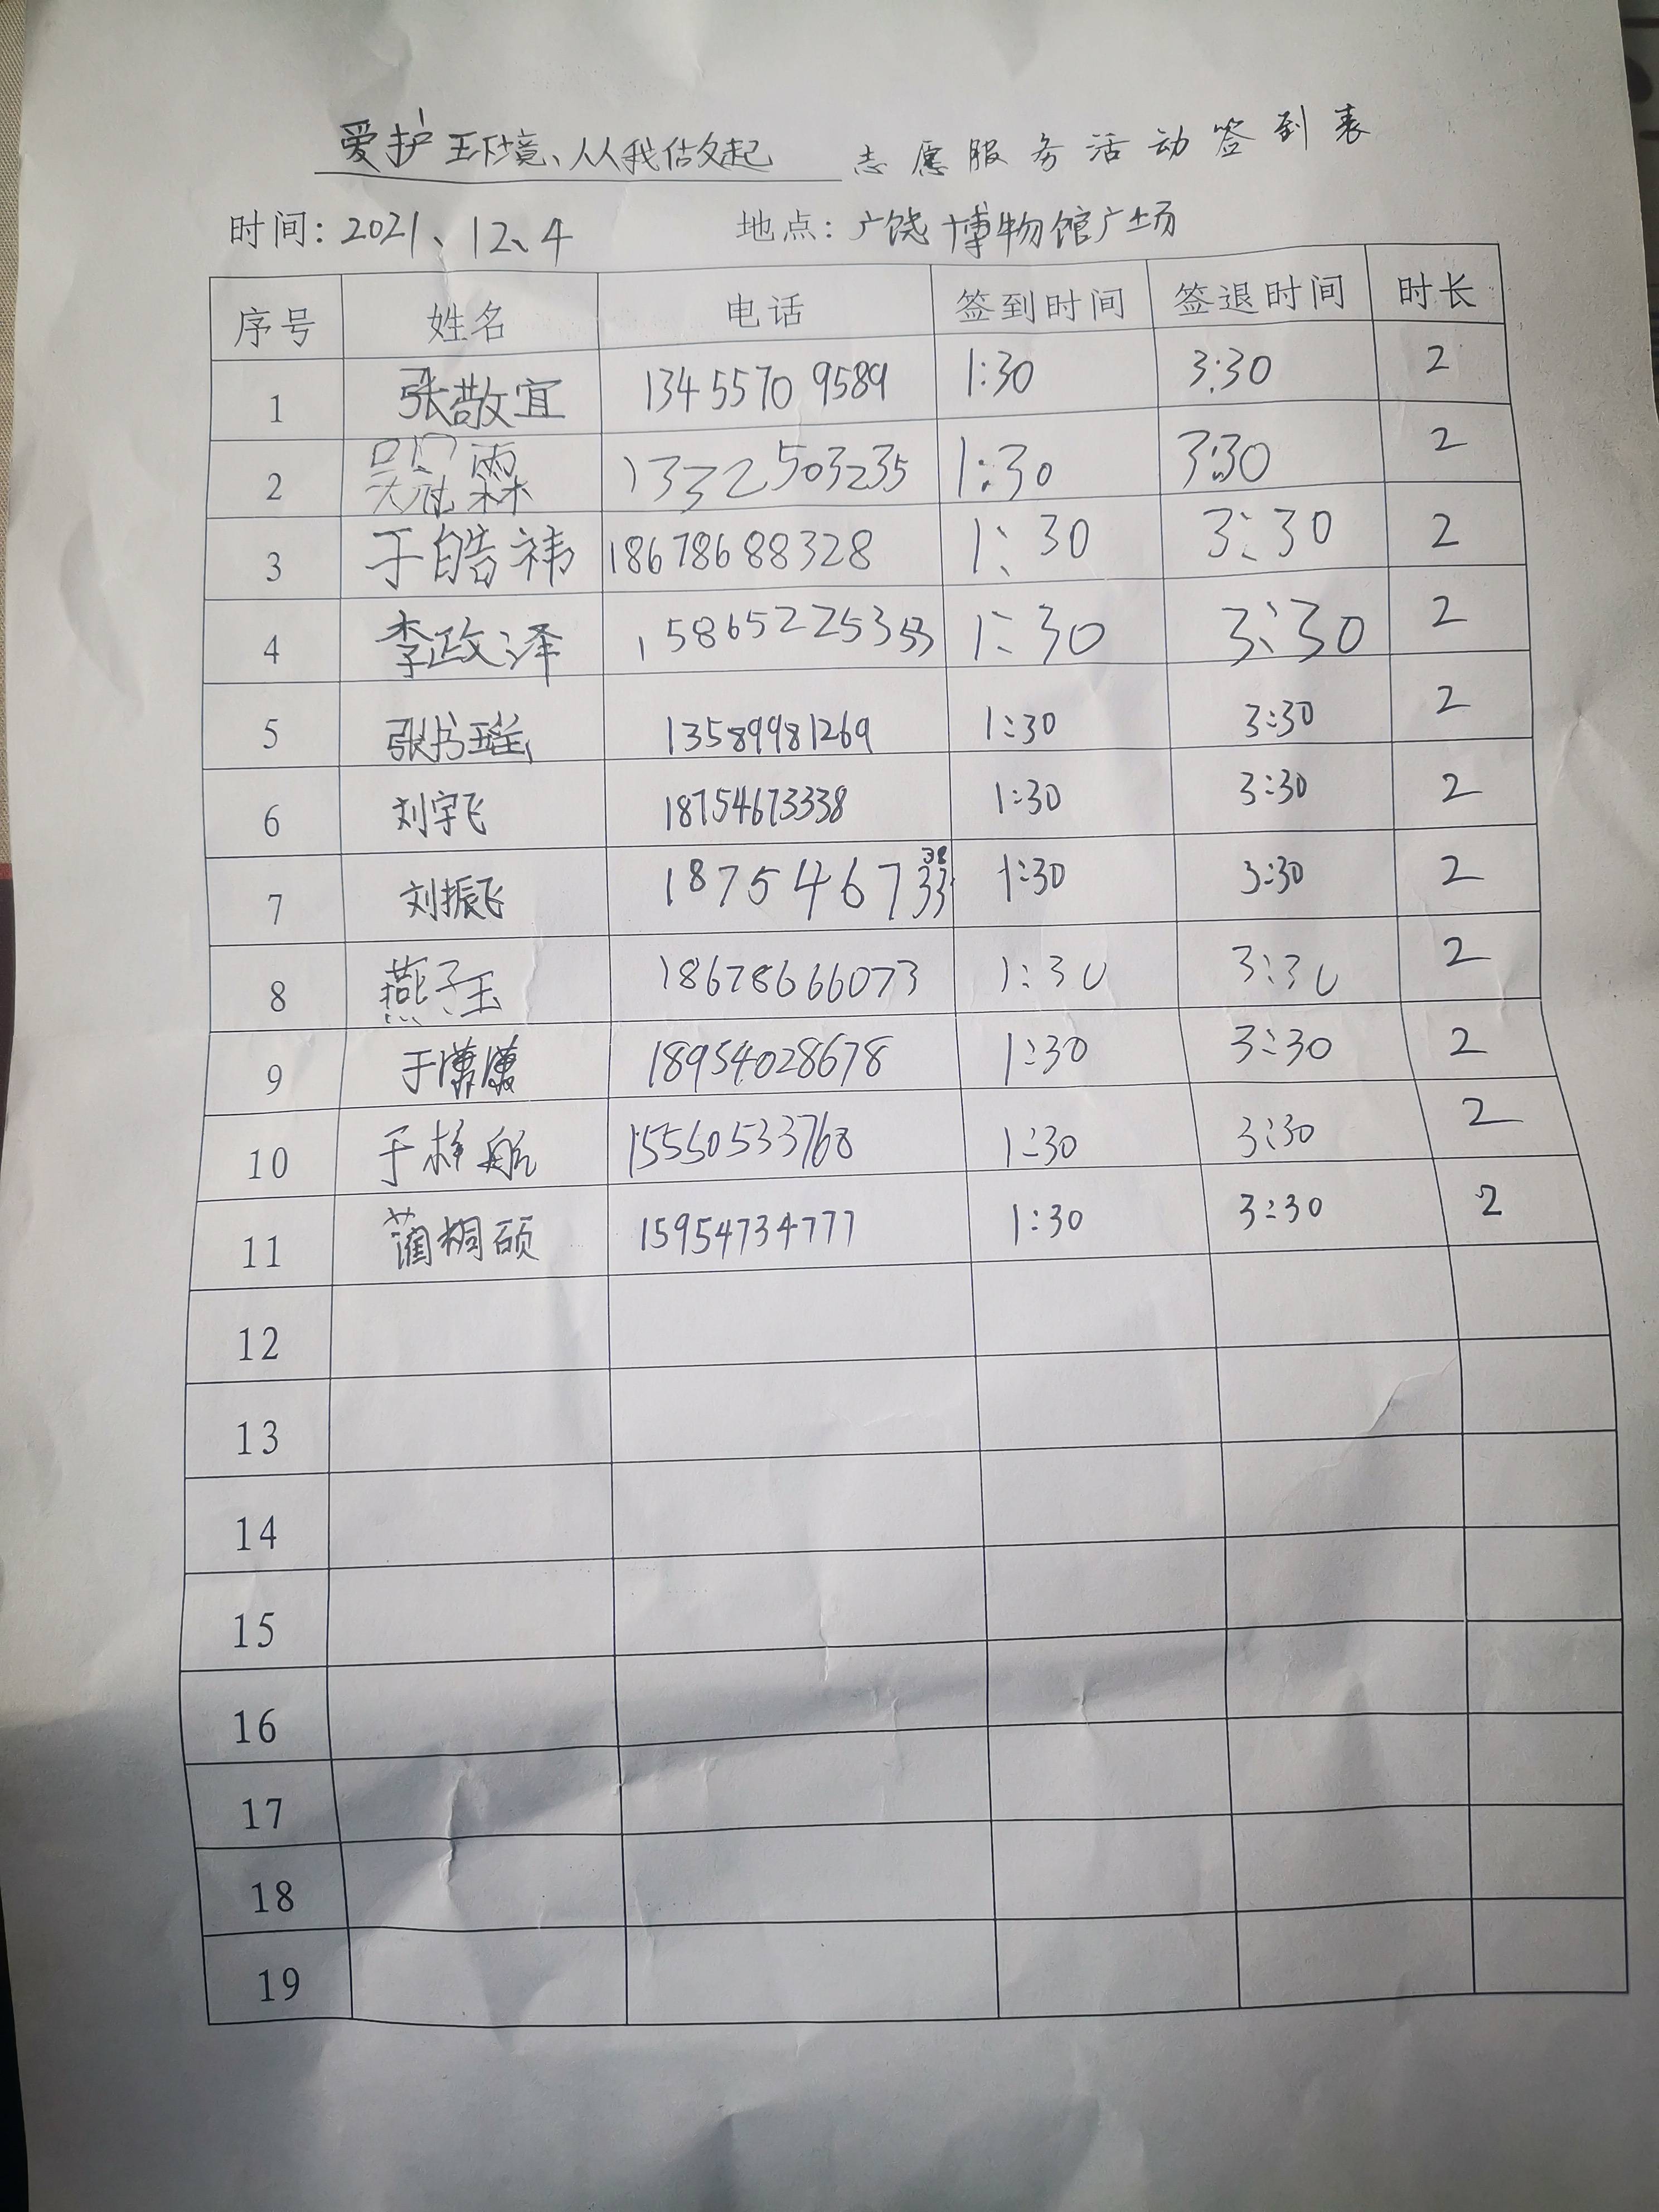 爱护环境、从我做起 志愿服务活动签到表
时间：2021、12、4 地点：广饶博物馆广场
序号 姓名 电话 签到时间 签退时间 时长
1 张敬宜 13455709589 1:30 3:30 2
2 吴冠霖 13322503235 1:30 3:30 2
3 于皓祎 18678688328 1:30 3:30 2
4 李政泽 15865225353 1:30 3:30 2
5 张书瑶 13589981269 1:30 3:30 2
6 刘宇飞 18754673338 1:30 3:30 2
7 刘振飞 18754673338 1:30 3:30 2
8 燕子玉 18678666073 1:30 3:30 2
9 于潇潇 18954028678 1:30 3:30 2
10 于梓航 15550533768 1:30 3:30 2
11 蔺桐硕 15954734777 1:30 3:30 2
12
13
14
15
16
17
18
19